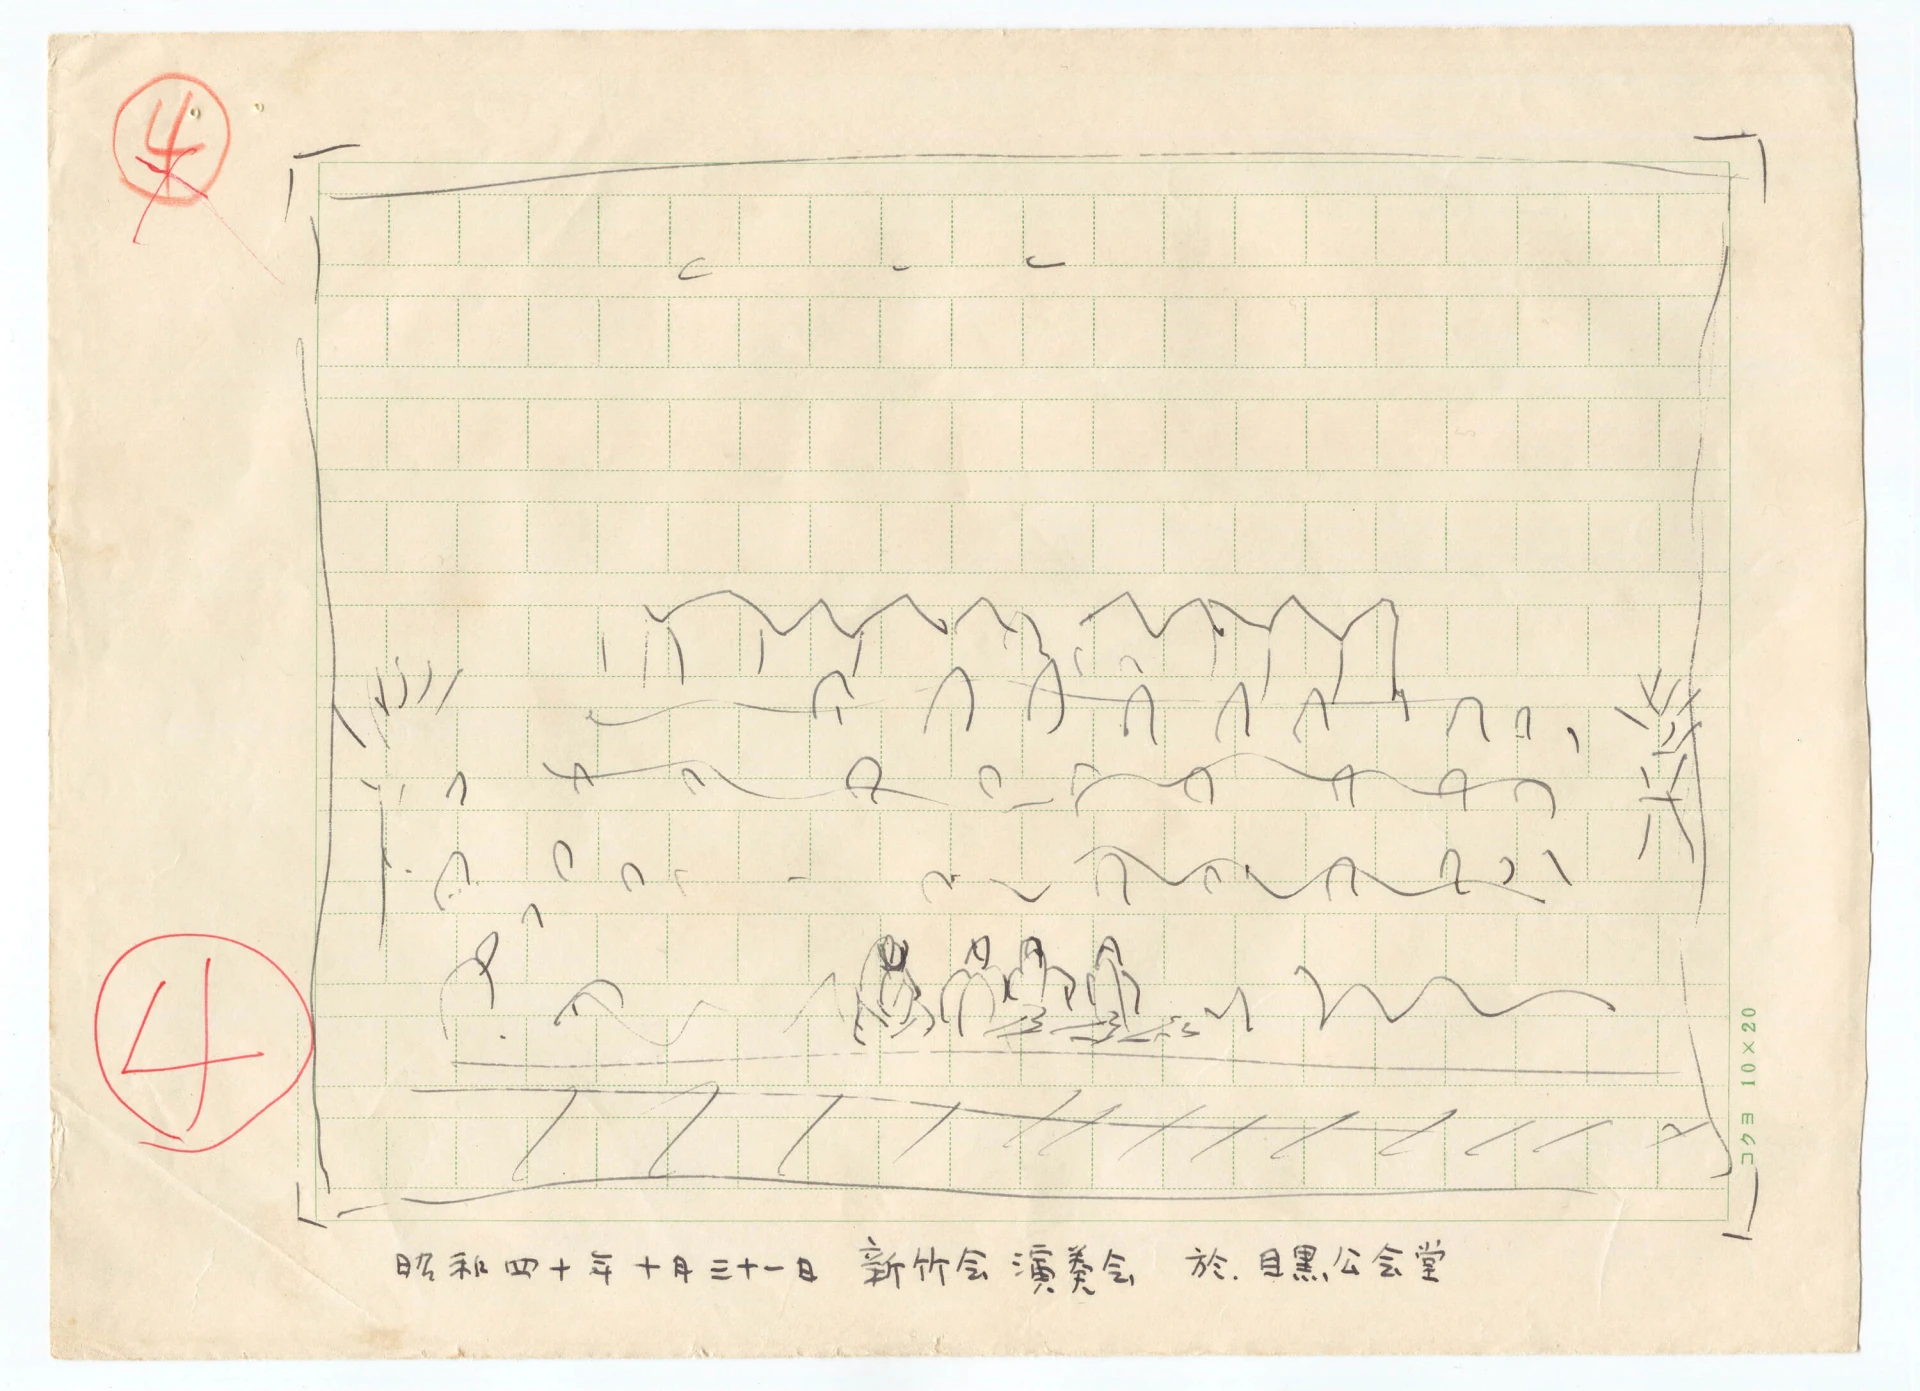 4
4
コクヨ 10×20
昭和四十年十月三十一日 新竹会演奏会 於.目黒公会堂